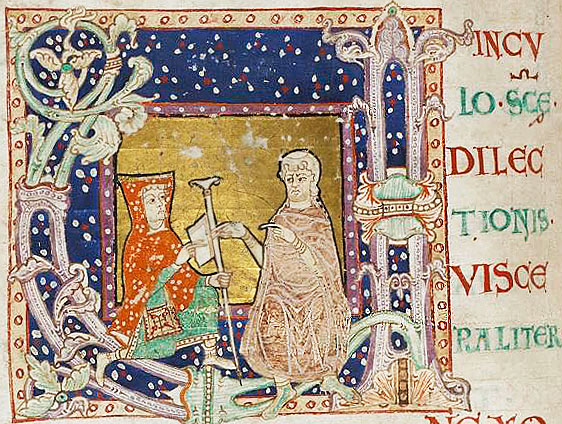 INCV
LO·SCE·
DILEC
TIONIS·
VISCE
RALITER